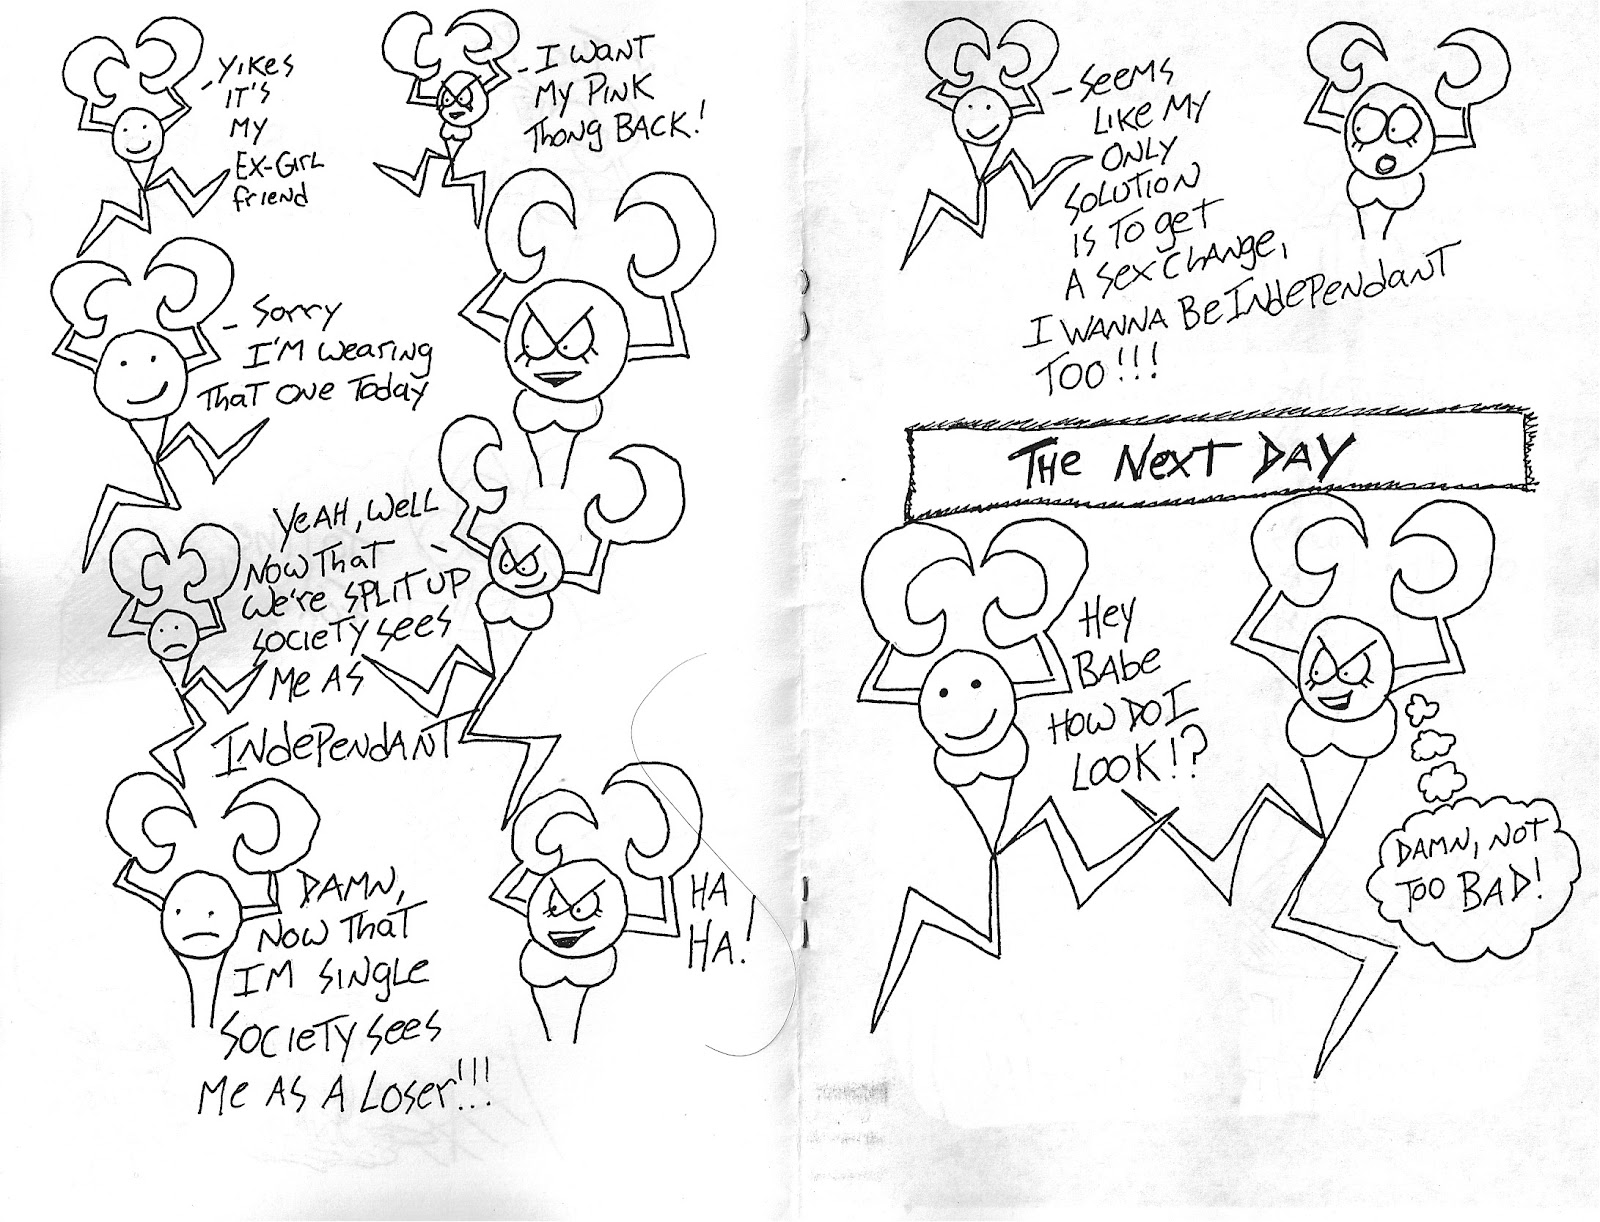 - YIKES
IT'S
MY
EX-GIRL
friend
- I WANT
MY PINK
Thong BACK!
- Sorry
I'M wearing
THAT ONE TODAY
YEAH, WELL
NOW THAT
We're SPLIT UP
SOCIETY SEES
ME AS
INdePENdANT
DAMN,
NOW THAT
I'M SINGLE
SOCIETY SEES
Me AS A LOSer!!!
HA
HA!
- Seems
LIKE MY
ONLY
SOLUTION
IS TO get
A Sex CHANge,
I WANNA Be INdePeNdANT
TOO!!!
THE NEXT DAY
Hey
BAbe
HOW DO I
LOOK!?
DAMN, NOT
TOO BAD!